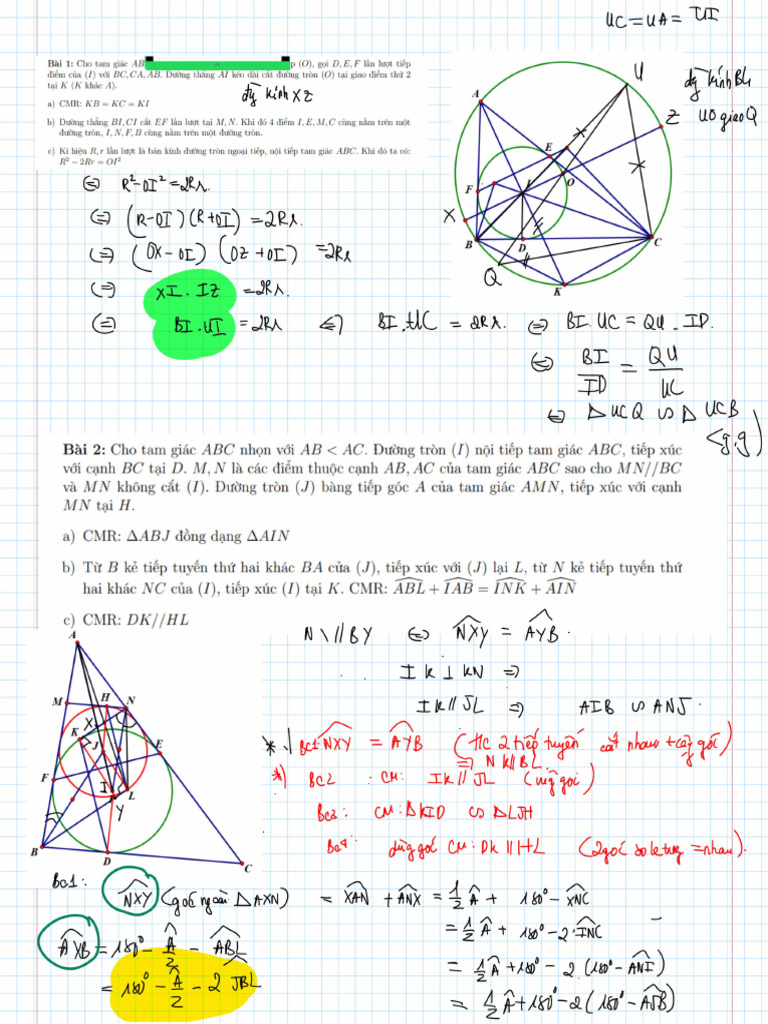 UC = UA = UI
Bài 1: Cho tam giác AB p (O), gọi D, E, F lần lượt tiếp
điểm của (I) với BC, CA, AB. Đường thẳng AI kéo dài cắt đường tròn (O) tại giao điểm thứ 2
tại K (K khác A).
đg kính XZ
a) CMR: KB = KC = KI
b) Đường thẳng BI, CI cắt EF lần lượt tại M, N. Khi đó 4 điểm I, E, M, C cùng nằm trên một
đường tròn, I, N, F, B cùng nằm trên một đường tròn.
c) Kí hiệu R, r lần lượt là bán kính đường tròn ngoại tiếp, nội tiếp tam giác ABC. Khi đó ta có:
R² − 2Rr = OI²
U
A
Z
E
I
O
F
X
B
D
C
Q
K
đg kính
UO giao Q
⇔ R² − OI² = 2Rr.
⇔ (R − OI)(R + OI) = 2Rr.
⇔ (OX − OI)(OZ + OI) = 2Rr
⇔ XI . IZ = 2Rr.
⇔ BI . UI = 2Rr ⇔ BI . UC = 2Rr. ⇔ BI . UC = QU . ID.
⇔ BI/ID = QU/UC
⇔ Δ UCQ ∽ Δ UCB
<g.g)
Bài 2: Cho tam giác ABC nhọn với AB < AC. Đường tròn (I) nội tiếp tam giác ABC, tiếp xúc
với cạnh BC tại D. M, N là các điểm thuộc cạnh AB, AC của tam giác ABC sao cho MN//BC
và MN không cắt (I). Đường tròn (J) bàng tiếp góc A của tam giác AMN, tiếp xúc với cạnh
MN tại H.
a) CMR: ΔABJ đồng dạng ΔAIN
b) Từ B kẻ tiếp tuyến thứ hai khác BA của (J), tiếp xúc với (J) lại L, từ N kẻ tiếp tuyến thứ
hai khác NC của (I), tiếp xúc (I) tại K. CMR: ABL + IAB = INK + AIN
c) CMR: DK//HL
A
M
H
N
K
X
J
E
F
I
L
Y
B
D
C
N\//BY ⇔ NXY = AYB.
IK ⊥ KN ⇒
IK // JL ⇒ AIB ∽ ANJ.
Bc1: NXY = AYB (t/c 2 tiếp tuyến cắt nhau + góc)
⇒ NK // BL
Bc2 : CM: IK // JL
Bc3: CM: ΔKID ∽ ΔLJH
Bc4: dùng góc CM: DK // HL (2 góc so le trg = nhau).
Bc1:
NXY (góc ngoài ΔAXN) = XAN + ANX = 1/2 A + 180° − XNC
= 1/2 A + 180° − 2.INC
= 1/2 A + 180° − 2.(180° − ANI)
= 1/2 A + 180 − 2(180° − AJB)
AXB = 180° − A/2 − ABL
= 180° − A/2 − 2 JBL